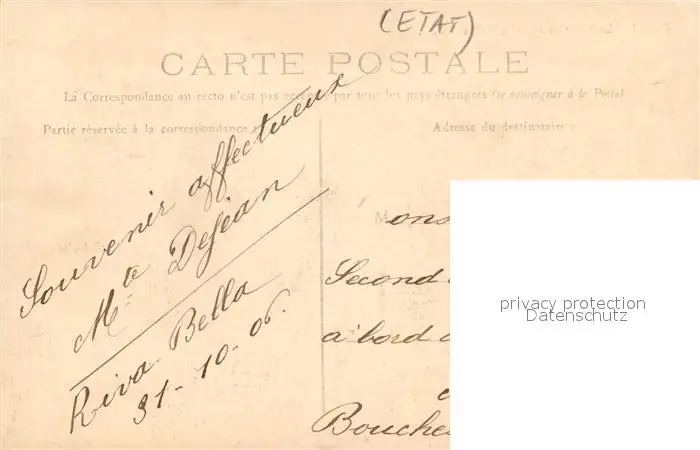 (ETAT)
CARTE POSTALE
La Correspondance au recto n'est pas par tous les pays étrangers (se renseigner à la Poste)
Partie réservée à la correspondance
Adresse du destinataire
Souvenir affectueux
Mte Dejean
Riva-Bella
31-10-06.
M
ons
Second
a' bord
Bouche
privacy protection
Datenschutz